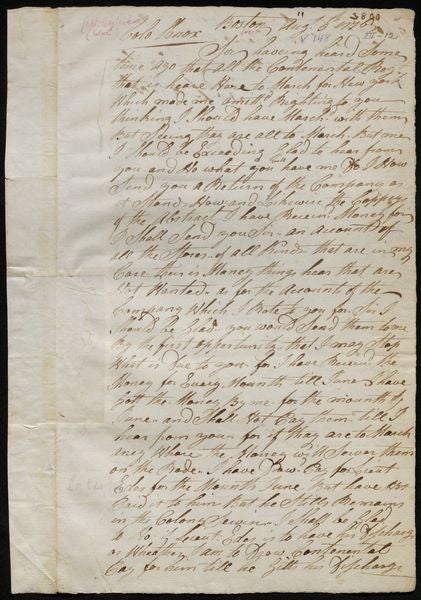 Colo Knox Boston Aug 5 1776
Sir haveing heard Some
time ago that all the Contenental Reg.
that is heare Were to March for New york
Which made me omitt Righting to you
thinking I should have March with them
But Seeing thay are all to March But me
I should be Exceeding Glad to hear from
you and No what you will have me Do I Now
Send you a Return of the Company as
it Stand Now and Likewise the Coppey
of the Abstract I have Receiv Money for
I Shall Send you Sir an Account of
all the Stores of all Kinds that are in my
Care thair is Money things hear that are
Not Wanted as for the Accounts of the
Company Which I Wrote to you for Sir I
Should be Glad you would Send them to me
By the first oppertunity that I may Stop
What is Due to you for I have Receivd the
Money for Every Mounth till June I have
gott the Money By me for the mounth of
June and Shall Not Pay them till I
hear from you for if thay are to March
any Where the Money will Sarve them
on the Rode I have Draw Pay for Lieut
Edes for the Mounth June But have Not
Paid it to him But he Stills Remains
in the Colony Service I Shall be Glad
to No if Lieut Edes is to have his Discharge
or Wheather I am to Draw Contenental
Pay for him till he Gitts his Discharge